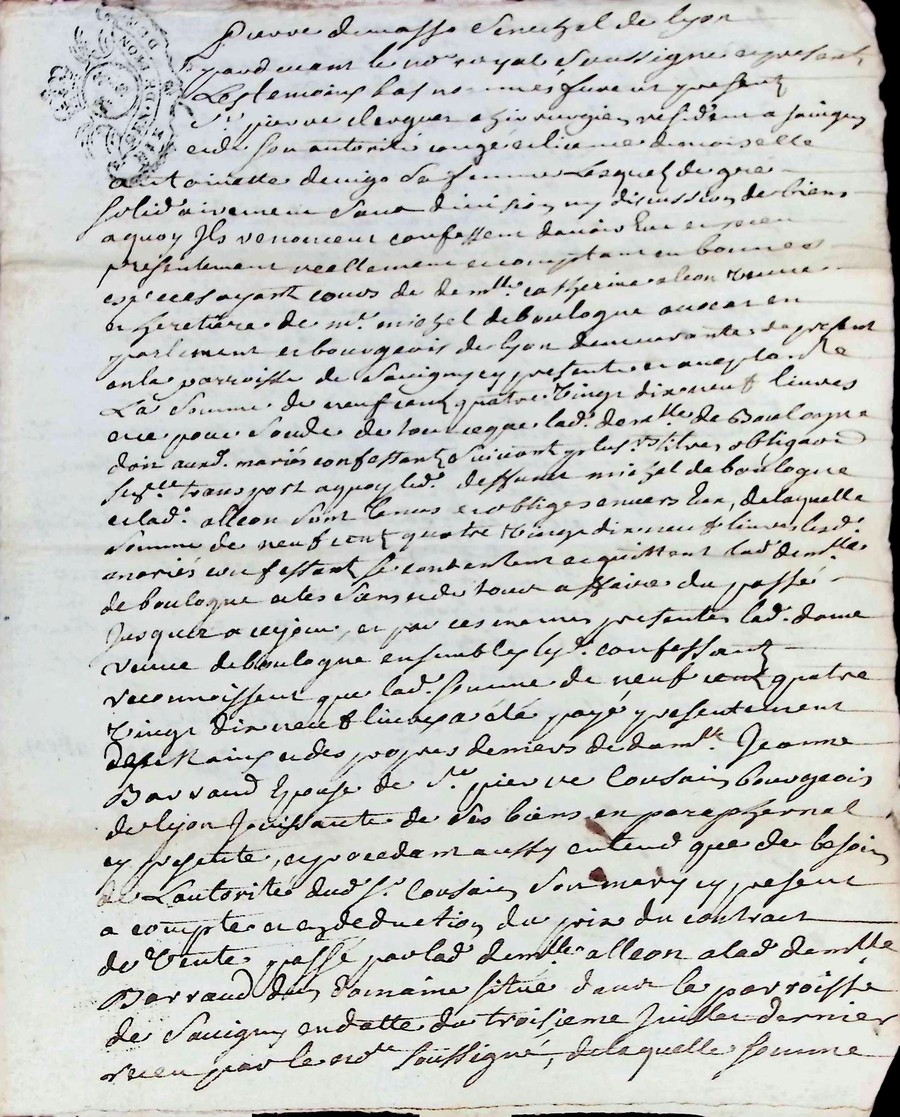 Pierre de masso Senechal de Lyon
pardevant le nore royal soussigné et presents
Les temoins bas nommés furent present
Sr pierre clerguet chirurgien residant a savigny
et de son autorité congé et licence demoiselle
antoinette de Lesquels de gré
solidairement sans division ny discussion de biens
a quoy Ils renoncent confessent davoir Eu et receu
presentement reellement et comptant en bonnes
especes ayant cours de demlle catherine alleon veuve
et heretiere de mr michel deboulogue avocat en
parlement et bourgeois de lyon demeurante de present
en la parroisse de Savigny cy presente et acceptante
La somme de neuf cent quatre vingt dix neuf livres
et ce pour solde de tout ce que lad. demlle de Boulogue
doit auxd. mariés confessants suivant plusrs titres obligaon
transport a quoy led. deffunt michel deboulogue
et lad. alleon sont tenus et obliges envers Eux, de laquelle
somme de neuf cent quatre vingt dix neuf livres lesd.
mariés confessants se contentent et quittent lad. demlle
deboulogue et les siens et de tout affaire du passé
jusques a ce jour, et par ces memes presentes lad. dame
veuve deboulogue ensemble lesd. confessants
reconnoissent que lad. somme de neuf cent quatre
vingt dix neuf livres a été payé presentement
des mains et des propres deniers de damlle Jeanne
Barraud Epouse de Sr pierre Cousain bourgeois
de lyon Jouissante de ses biens en paraphernal
cy presente, et procedant aussy entend que de besoin
de L'autorité dud. Sr Cousain Son mary cy present
a compte et en deduction du prix du contract
de vente passé par lad. demlle alleon a lad. demlle
Barraud dun Domaine situé dans la parroisse
de Savigny en datte du troisieme Juillet dernier
receu par le nore soussigné, de laquelle somme